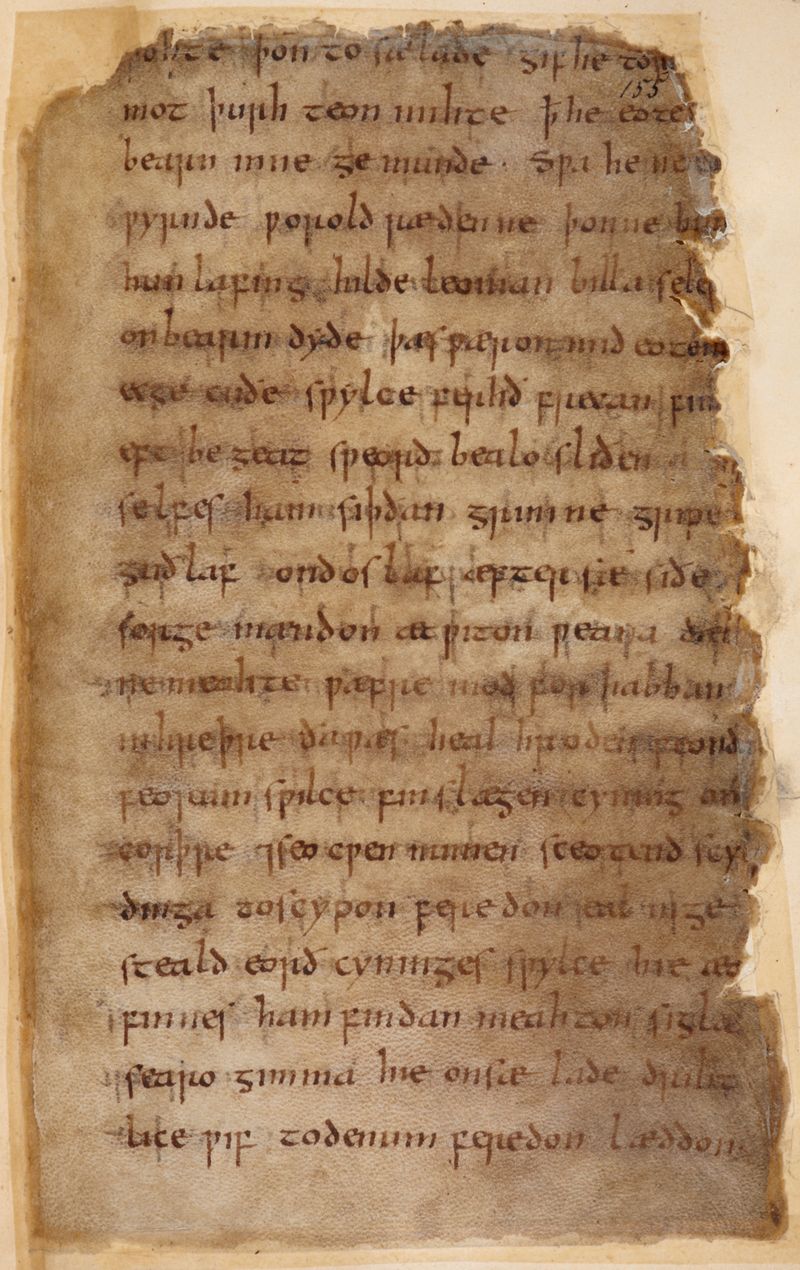 ƿohte þon to sælade gif he torn
155
mot þurh teon mihte ꝥ he eotena
bearn inne ge munde · Sƿa he ne
ƿyrnde ƿorold rædenne þonne him
hun lafing hilde leoman billa sele
on bearm dyde þæs ƿæron mid eotenum
ecge cuðe sƿylce ferhð frecan fin
eft be geat sƿeord bealo sliðen
selfes ham siþðan grimne gripe
guð laf ond oslaf æfter sæ siðe
sorge mændon æt ƿiton ƿeana dæl
ne meahte ƿæfre mod for habban
in hreþre ða ƿæs heal hroden feond
feorum sƿilce fin slægen cyning on
corþre ⁊ seo cƿen numen sceotend scyl
dinga to scypon feredon eal inge
steald eorð cyninges sƿylce hie æt
finnes ham findan meahton sigla
searo gimma hie on sæ lade driht
lice ƿif to denum feredon læddon